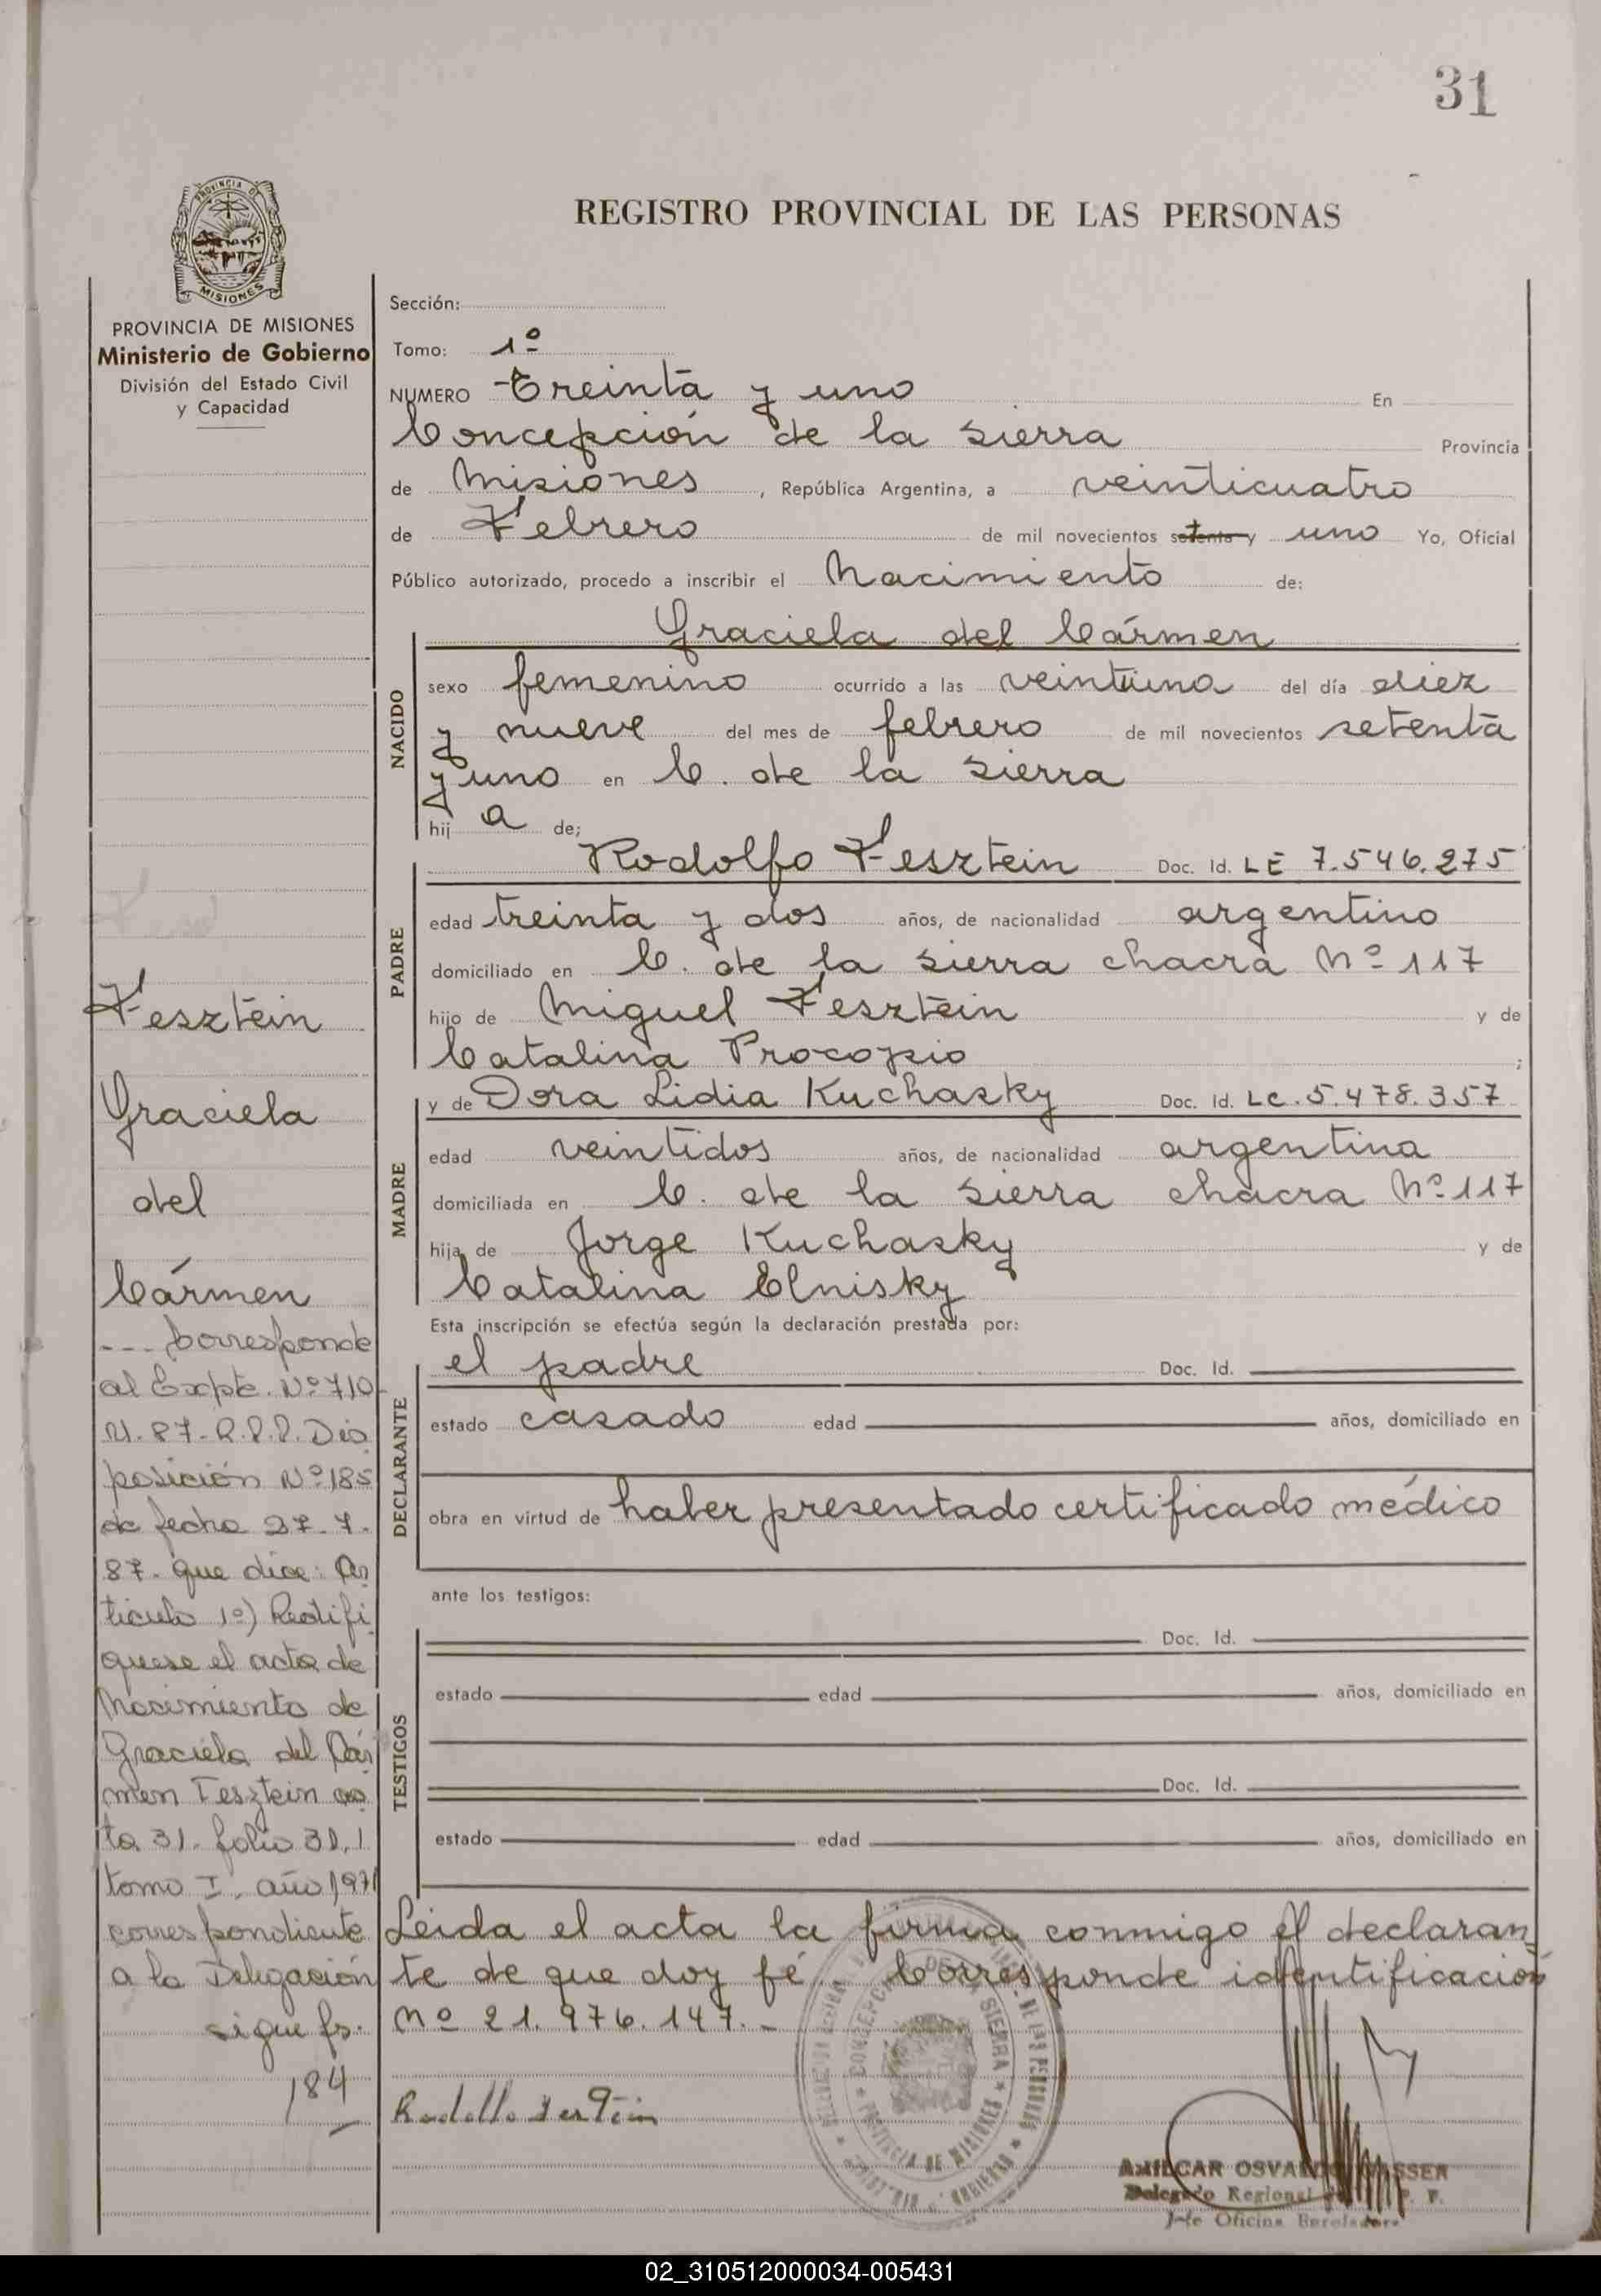 31
REGISTRO PROVINCIAL DE LAS PERSONAS
PROVINCIA DE
MISIONES
PROVINCIA DE MISIONES
Ministerio de Gobierno
División del Estado Civil
y Capacidad
Sección:
Tomo: 1º
NUMERO Treinta y uno En
Concepción de la Sierra Provincia
de Misiones, República Argentina, a veinticuatro
de Febrero de mil novecientos setenta y uno Yo, Oficial
Público autorizado, procedo a inscribir el Nacimiento de:
Graciela del Cármen
NACIDO
sexo femenino ocurrido a las veintiuna del día diez
y nueve del mes de febrero de mil novecientos setenta
y uno en C. de la Sierra
hij a de;
Rodolfo Fesztein Doc. Id. LE 7.546.275
PADRE
edad treinta y dos años, de nacionalidad argentino
domiciliado en C. de la Sierra chacra Nº 117
hijo de Miguel Fesztein y de
Catalina Procopio ;
y de Dora Lidia Kuchasky Doc. Id. LC. 5.478.357
MADRE
edad veintidos años, de nacionalidad argentina
domiciliada en C. de la Sierra chacra Nº 117
hija de Jorge Kuchasky y de
Catalina Elnisky
Esta inscripción se efectúa según la declaración prestada por:
el padre Doc. Id.
DECLARANTE
estado casado edad años, domiciliado en
obra en virtud de haber presentado certificado médico
ante los testigos:
Doc. Id.
TESTIGOS
estado edad años, domiciliado en
Doc. Id.
estado edad años, domiciliado en
Leida el acta la firma conmigo el declaran-
te de que doy fé. Corresponde identificación
Nº 21.976.147.-
Rodolfo Fesztein
CONCEPCION DE LA SIERRA
PROVINCIA DE MISIONES
OSVALDO
Delegado Regional
Jefe Oficina
Fesztein
Graciela
del
Cármen
--- Corresponde
al Expte. Nº 710-
M-87-R.P.P. Dis
posición Nº 185
de fecha 27-7-
87- que dice: Ar
ticulo 1º) Rectifi
quese el acta de
Nacimiento de
Graciela del Cár
men Fesztein ac
ta 31- folio 31,
tomo I, año 1971
correspondiente
a la Delegación
sigue fs.
184
02_310512000034-005431